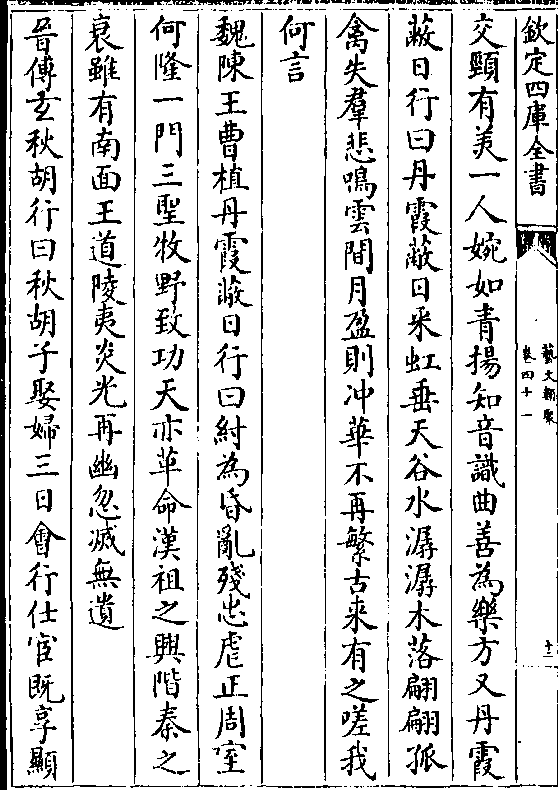 欽定四庫全書
藝文類聚
卷四十一
十三
交頸有美一人婉如青揚知音識曲善為樂方又丹霞
蔽日行曰丹霞蔽日采虹垂天谷水潺潺木落翩翩孤
禽失羣悲鳴雲間月盈則冲華不再繁古来有之嗟我
何言
魏陳王曹植丹霞蔽日行曰紂為昏亂殘忠虐正周室
何隆一門三聖牧野致功天亦革命漢祖之興階秦之
衰雖有南面王道陵夷炎光再幽忽滅無遺
晉傅玄秋胡行曰秋胡子娶婦三日會行仕宦既享顯